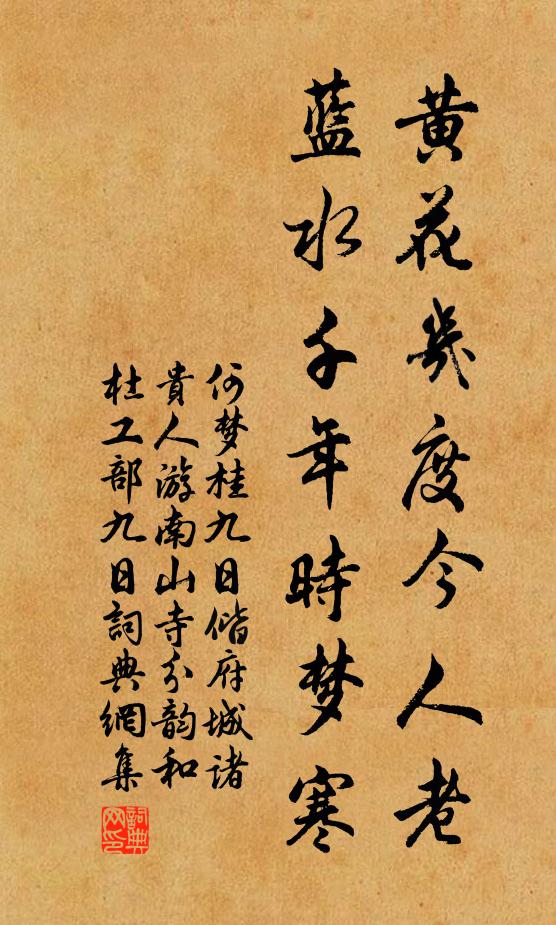 黄花幾度今人老
蓝水千年時梦寒
何梦桂九日偕府城诸
貴人游南山寺分韵和
杜工部九日詞典網集
詞典
网印